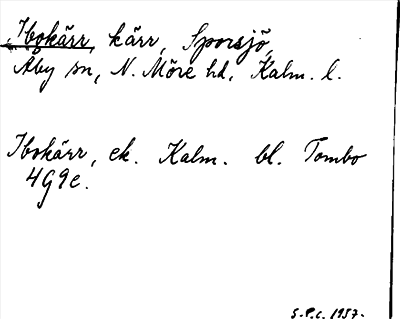 Ibokärr, kärr, Sporsjö,
Åby sn, N. Möre hd, Kalm. l.
Ibokärr, ek. Kalm. bl. Tombo
4G9c.
S.P.C. 1957.